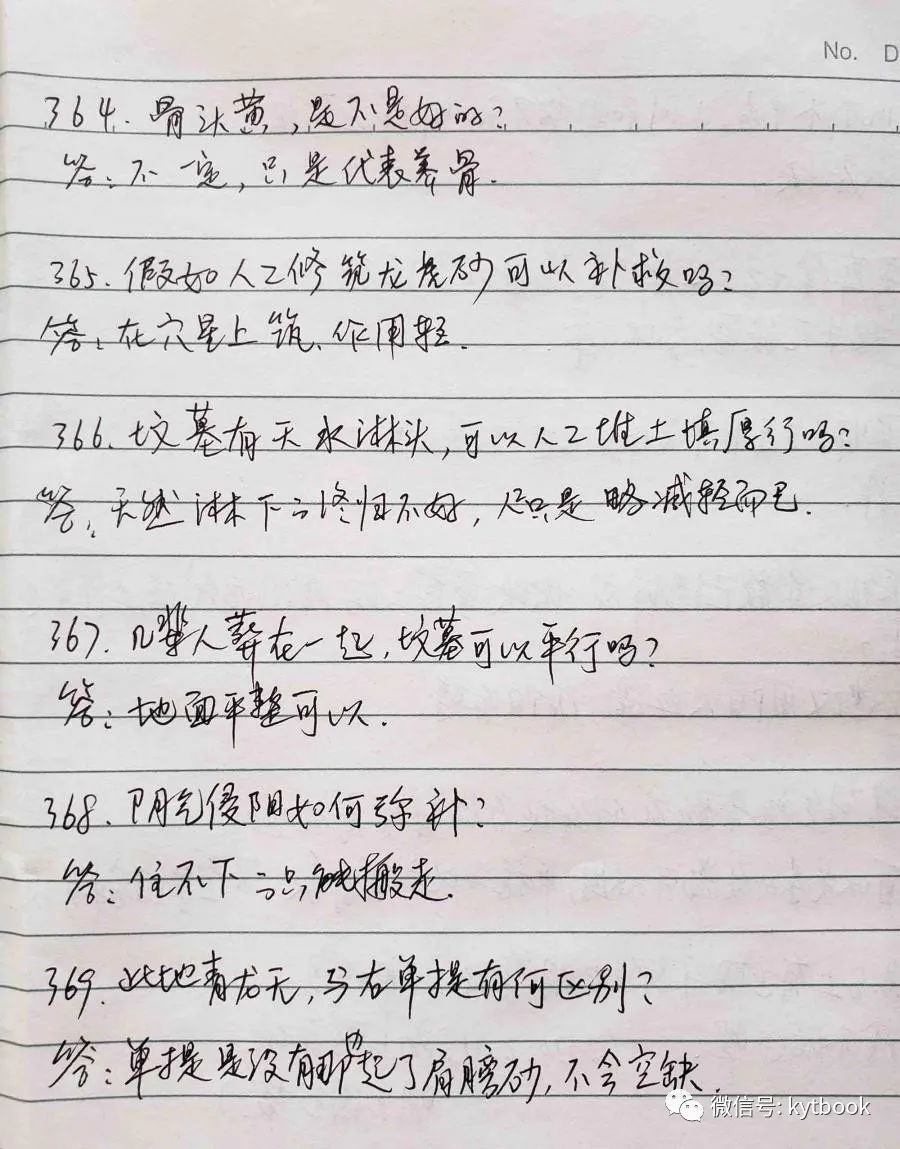 No. D
364. 骨头黄，是不是好的？
答：不一定，只是代表养骨.
365. 假如人工修筑龙虎砂可以补救吗？
答：在穴星上筑、作用轻.
366. 坟墓有天水淋头，可以人工堆土填厚行吗？
答：天然淋下 终归不好，只是略减轻而已.
367. 几辈人葬在一起，坟墓可以平行吗？
答：地面平整可以.
368. 阴气侵阳如何弥补？
答：住不下 只能搬走.
369. 此地青龙无，与右单提有何区别？
答：单提是没有 起了肩膀砂，不会空缺.
微信号: kytbook